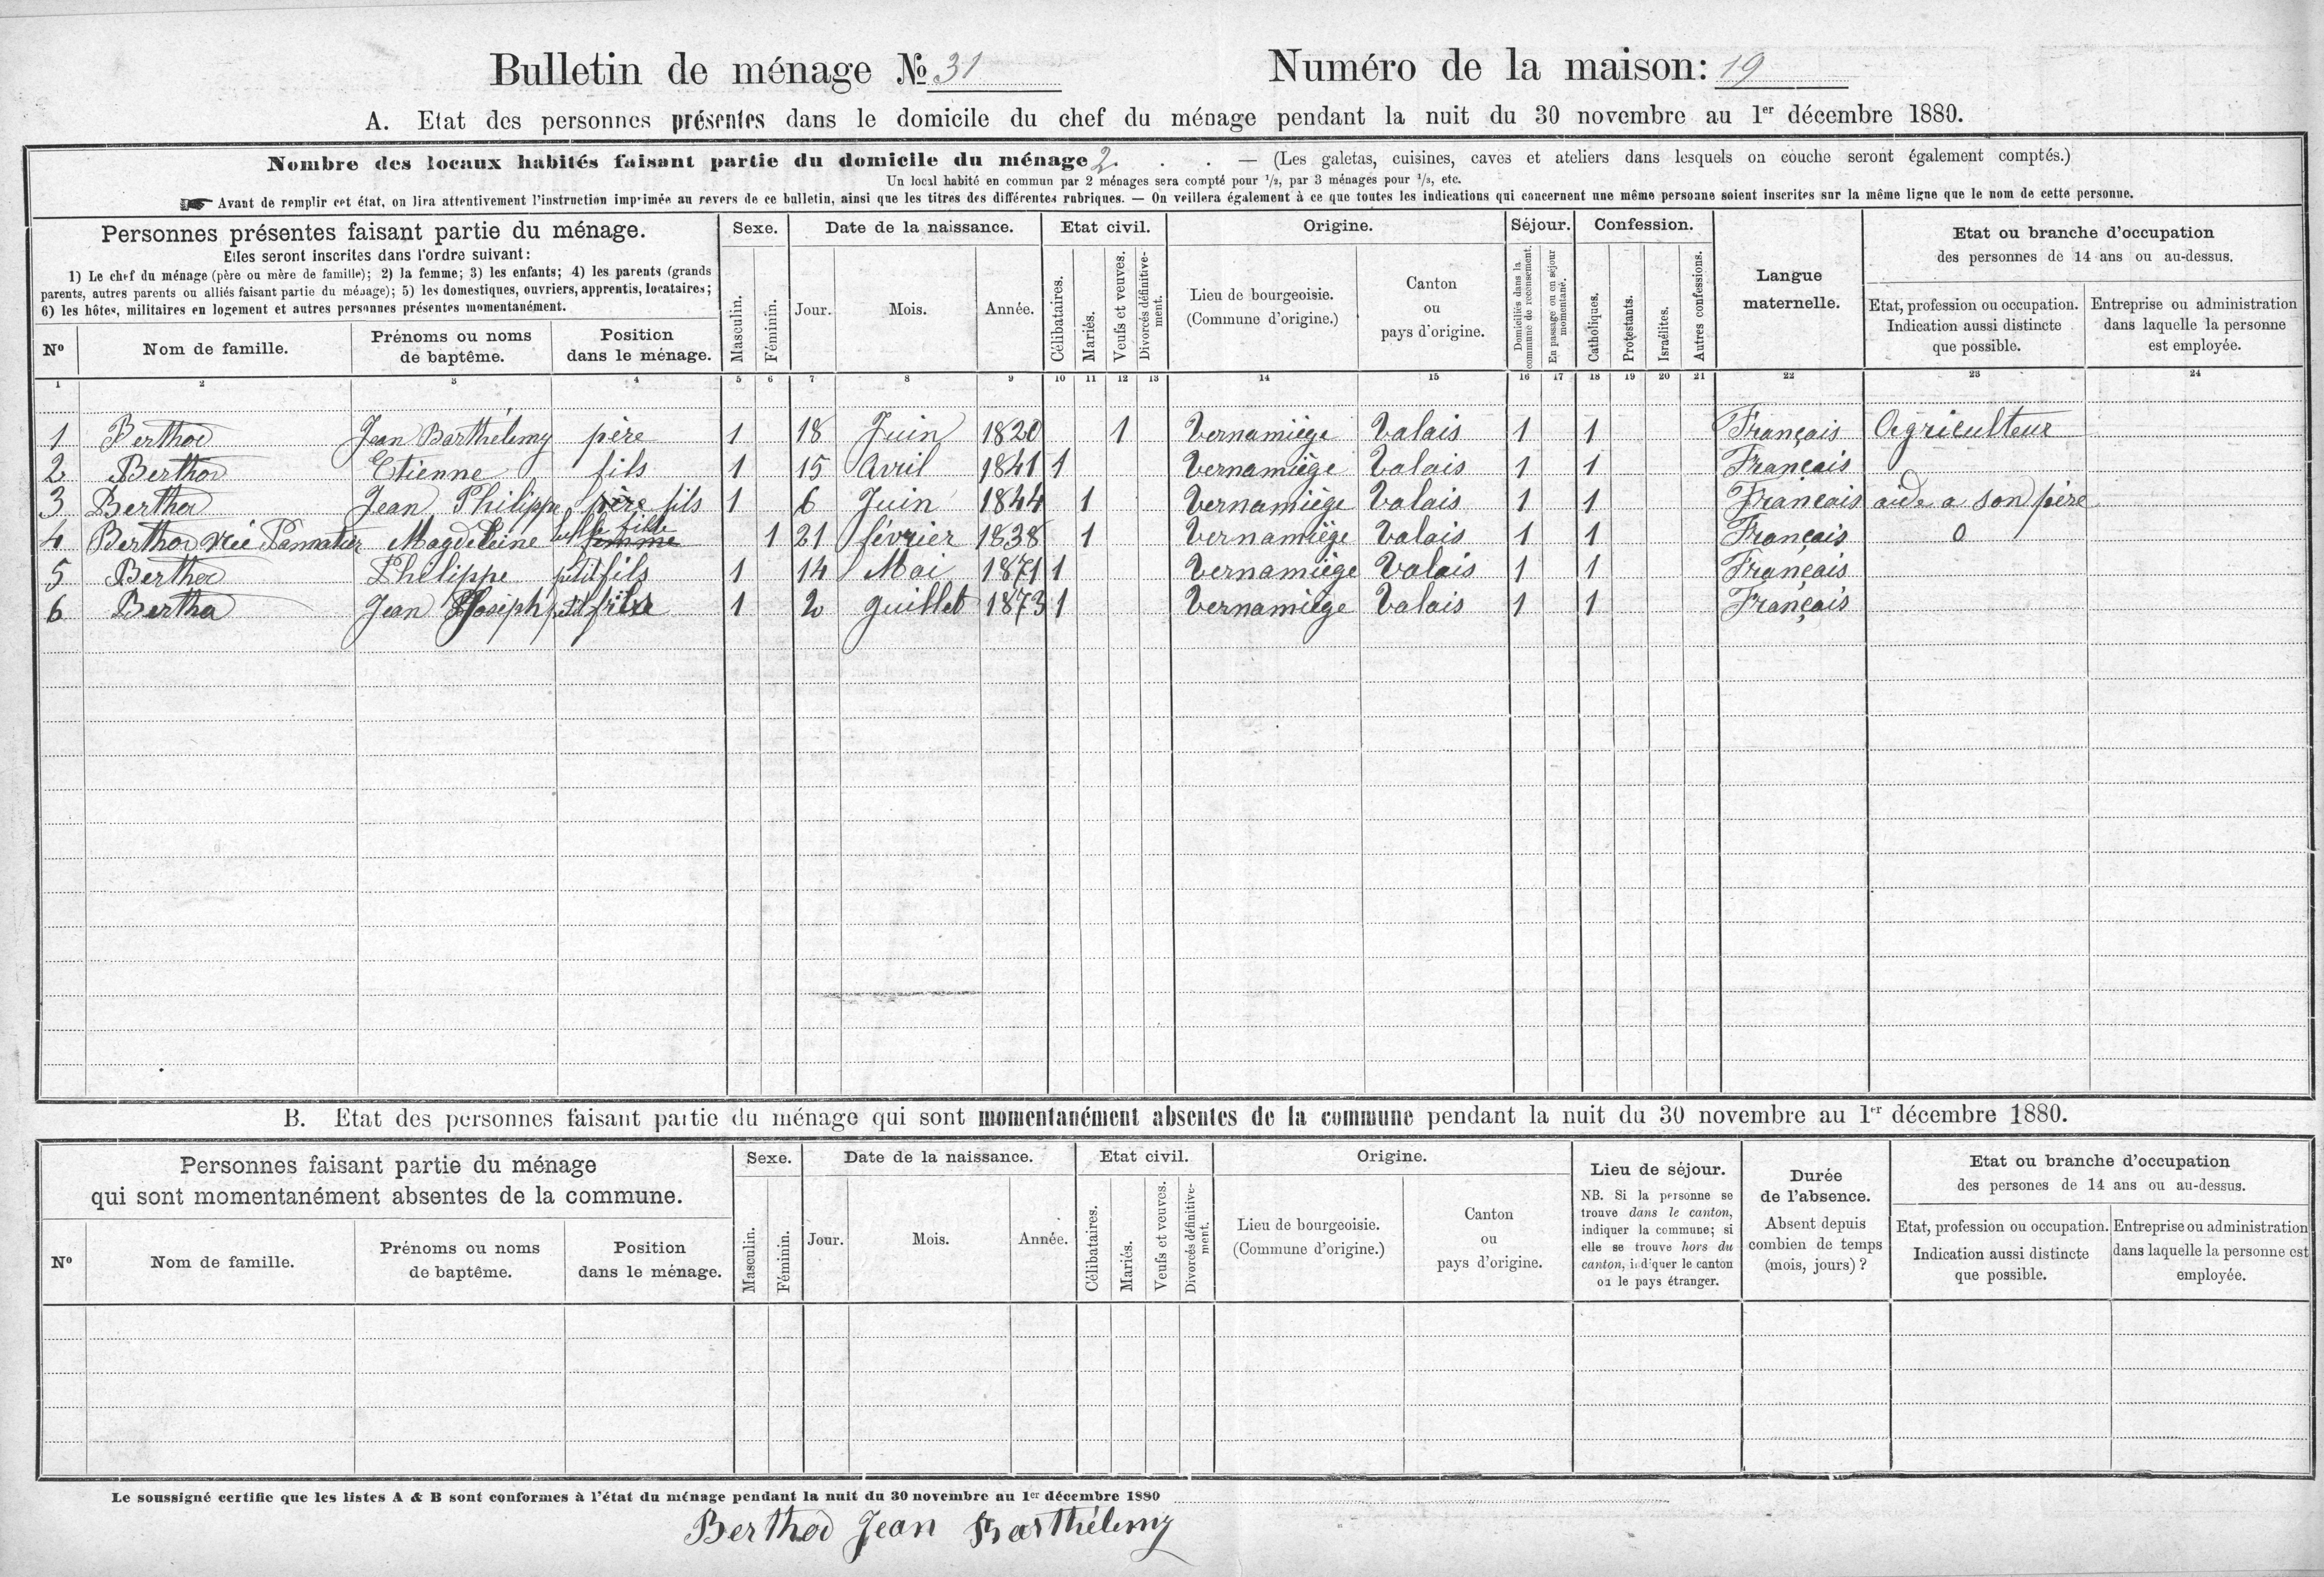 Bulletin de ménage № 31
Numéro de la maison: 19
A. Etat des personnes présentes dans le domicile du chef du ménage pendant la nuit du 30 novembre au 1er décembre 1880.
Nombre des locaux habités faisant partie du domicile du ménage 2. . . — (Les galetas, cuisines, caves et ateliers dans lesquels on couche seront également comptés.)
Un local habité en commun par 2 ménages sera compté pour 1/2, par 3 ménages pour 1/3, etc.
Avant de remplir cet état, on lira attentivement l'instruction imprimée au revers de ce bulletin, ainsi que les titres des différentes rubriques. — On veillera également à ce que toutes les indications qui concernent une même personne soient inscrites sur la même ligne que le nom de cette personne.
Personnes présentes faisant partie du ménage.
Elles seront inscrites dans l'ordre suivant:
1) Le chef du ménage (père ou mère de famille); 2) la femme; 3) les enfants; 4) les parents (grands
parents, autres parents ou alliés faisant partie du ménage); 5) les domestiques, ouvriers, apprentis, locataires;
6) les hôtes, militaires en logement et autres personnes présentes momentanément.
Nº
Nom de famille.
Prénoms ou noms
de baptême.
Position
dans le ménage.
Sexe.
Masculin.
Féminin.
Date de la naissance.
Jour.
Mois.
Année.
Etat civil.
Célibataires.
Mariés.
Veufs et veuves.
Divorcés définitive-
ment.
Origine.
Lieu de bourgeoisie.
(Commune d'origine.)
Canton
ou
pays d'origine.
Séjour.
Domiciliés dans la
commune de recensement.
En passage ou en séjour
momentané.
Confession.
Catholiques.
Protestants.
Israélites.
Autres confessions.
Langue
maternelle.
Etat ou branche d'occupation
des personnes de 14 ans ou au-dessus.
Etat, profession ou occupation.
Indication aussi distincte
que possible.
Entreprise ou administration
dans laquelle la personne
est employée.
1 2 3 4 5 6 7 8 9 10 11 12 13 14 15 16 17 18 19 20 21 22 23 24
1 Berthod Jean Barthélemy père 1 18 Juin 1820 1 Vernamiège Valais 1 1 Français Agriculteur
2 Berthod Etienne fils 1 15 Avril 1841 1 Vernamiège Valais 1 1 Français
3 Berthod Jean Philippe père fils 1 6 Juin 1844 1 Vernamiège Valais 1 1 Français aide a son père
4 Berthod née Pannatier Magdeleine belle fille femme 1 21 février 1838 1 Vernamiège Valais 1 1 Français 0
5 Berthod Philippe petit fils 1 14 Mai 1871 1 Vernamiège Valais 1 1 Français
6 Berthod Jean Joseph petit fils 1 2 Juillet 1873 1 Vernamiège Valais 1 1 Français
B. Etat des personnes faisant partie du ménage qui sont momentanément absentes de la commune pendant la nuit du 30 novembre au 1er décembre 1880.
Personnes faisant partie du ménage
qui sont momentanément absentes de la commune.
Nº
Nom de famille.
Prénoms ou noms
de baptême.
Position
dans le ménage.
Sexe.
Masculin.
Féminin.
Date de la naissance.
Jour.
Mois.
Année.
Etat civil.
Célibataires.
Mariés.
Veufs et veuves.
Divorcés définitive-
ment.
Origine.
Lieu de bourgeoisie.
(Commune d'origine.)
Canton
ou
pays d'origine.
Lieu de séjour.
NB. Si la personne se
trouve dans le canton,
indiquer la commune; si
elle se trouve hors du
canton, indiquer le canton
ou le pays étranger.
Durée
de l'absence.
Absent depuis
combien de temps
(mois, jours)?
Etat ou branche d'occupation
des persones de 14 ans ou au-dessus.
Etat, profession ou occupation.
Indication aussi distincte
que possible.
Entreprise ou administration
dans laquelle la personne est
employée.
Le soussigné certifie que les listes A & B sont conformes à l'état du ménage pendant la nuit du 30 novembre au 1er décembre 1880
Berthod Jean Barthélemy